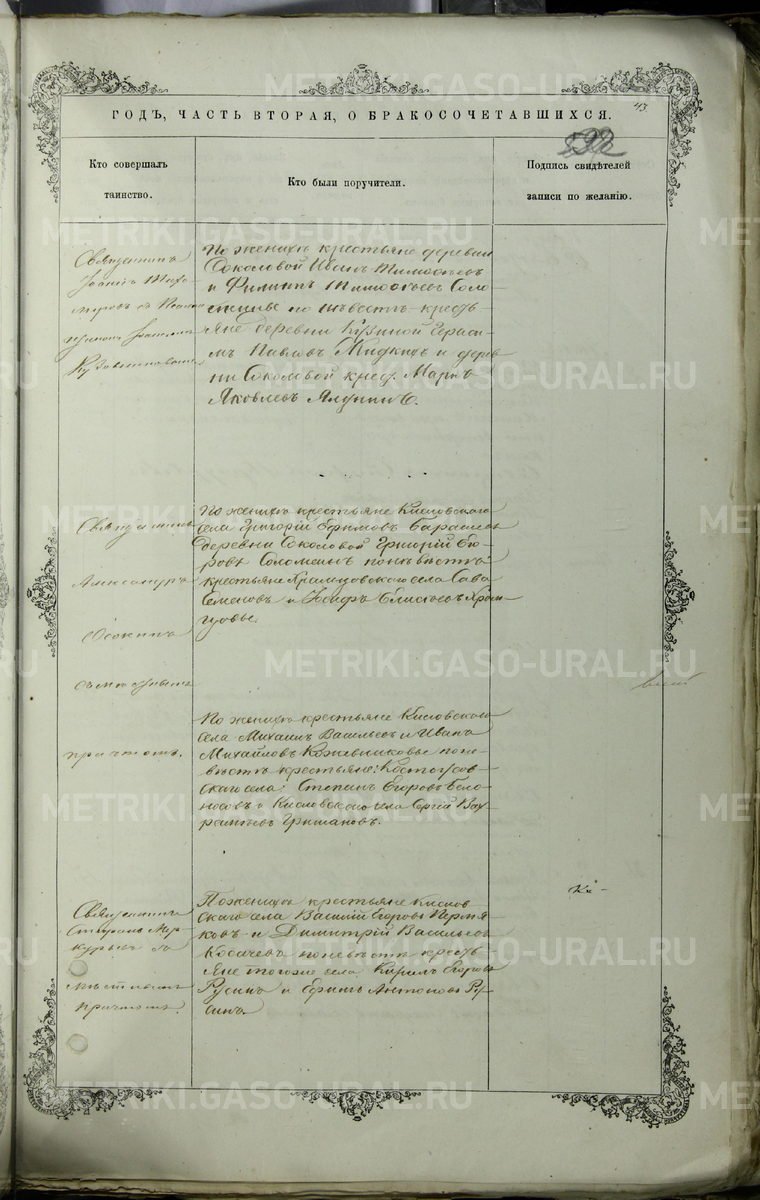 METRIKI.GASO-URAL.RU
43
ГОДЪ, ЧАСТЬ ВТОРАЯ, О БРАКОСОЧЕТАВШИХСЯ.
Кто совершалъ
таинство.
Кто были поручители.
Подпись свидѣтелей
записи по желанію.
Священникъ
Іоаннъ
По женихѣ крестьяне деревни
Соколовой Иванъ Тимоѳеевъ
и Филиппъ Тимоѳеевъ Соло-
по невѣстѣ кресть-
яне деревни Кузиной Гераси-
мъ Павловъ Жидкихъ и дерев
ни Соколовой крест. Марк
Яковлевъ
Священникъ
Александръ
Осокинъ
съ
причтомъ.
По женихѣ крестьяне Кисловскаго
села Григорій Ефимовъ
деревни Соколовой Григорій Его-
ровъ Соломеинъ по невѣстѣ
крестьяне Храмцовскаго села Сава
Семеновъ и Іосифъ Елисѣевъ Храм-
цовы.
По женихѣ крестьяне Кисловскаго
села Михаилъ Васильевъ и Иванъ
Михайловъ Кожевниковы по не-
вѣстѣ крестьяне: Костоусов-
скаго села Степанъ Егоровъ Бело-
носовъ и Кисловскаго села Сергій Вах-
рамѣевъ Гришановъ.
Священникъ
Стефанъ Мер-
курьевъ съ
мѣстнымъ
причтомъ.
По женихѣ крестьяне Кислов
скаго села Василій Егоровъ Пермя-
ковъ и Димитрій Васильевъ
Косачевъ по невѣстѣ кресть-
яне тогоже села Кирилъ Егоровъ
Русинъ и Ефимъ Антоновъ Ру-
синъ.
METRIKI.GASO-URAL.RU
METRIKI.GASO-URAL.RU
METRIKI.GASO-URAL.RU
METRIKI.GASO-URAL.RU
METRIKI.GASO-URAL.RU